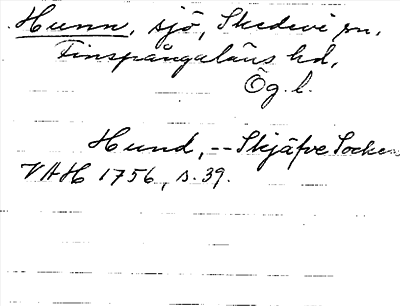 Hunn, sjö, Skedevi sn,
Finspångaläns hd,
Ög l.
Hund, -- Skjäfve Socken
VAH 1756, s. 39.